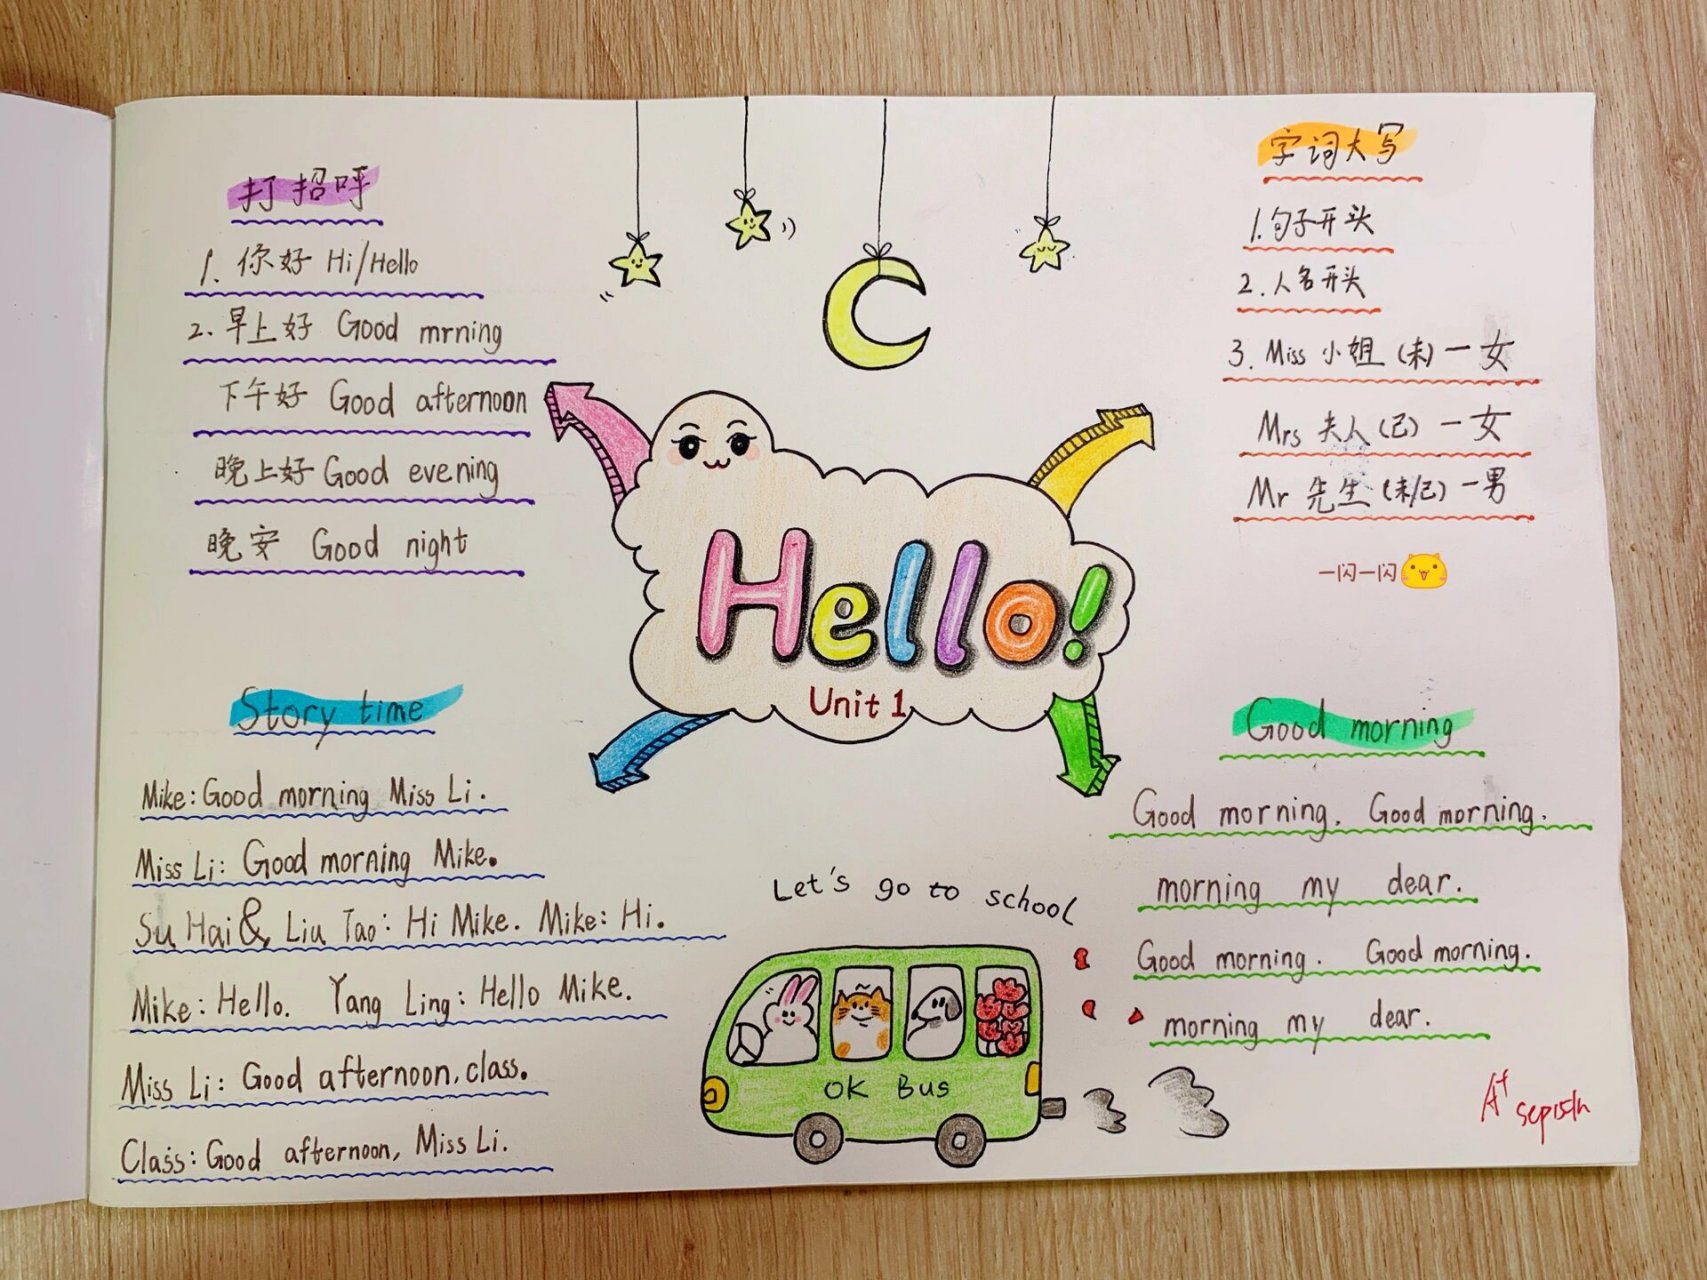 打招呼
1. 你好 Hi/Hello
2. 早上好 Good mrning
下午好 Good afternoon
晚上好 Good evening
晚安 Good night
字词大写
1.句子开头
2.人名开头
3. Miss 小姐 (未) 一女
Mrs 夫人 (已) 一女
Mr 先生 (未/已) 一男
一闪一闪
Hello!
Unit 1
Story time
Mike: Good morning Miss Li.
Miss Li: Good morning Mike.
Su Hai & Liu Tao: Hi Mike. Mike: Hi.
Mike: Hello. Yang Ling: Hello Mike.
Miss Li: Good afternoon, class.
Class: Good afternoon, Miss Li.
Let's go to school
OK Bus
Good morning
Good morning. Good morning.
morning my dear.
Good morning. Good morning.
morning my dear.
A+
sep15th